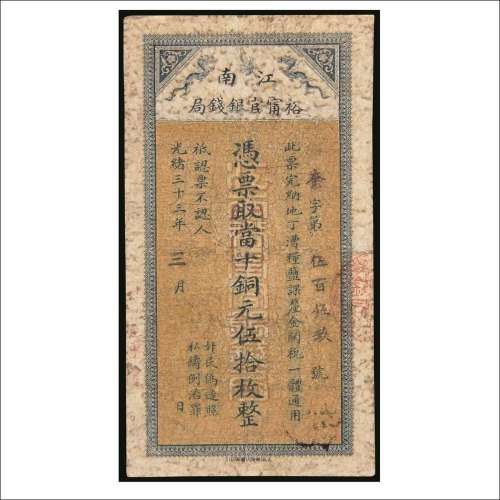 江南
裕甯官銀錢局
字第伍百伍玖號
此票完納地丁漕糧鹽課釐金關稅一體通用
憑票取當十銅元伍拾枚整
祗認票不認人
光緒三十三年三月日
奸民偽造照
私鑄例治罪